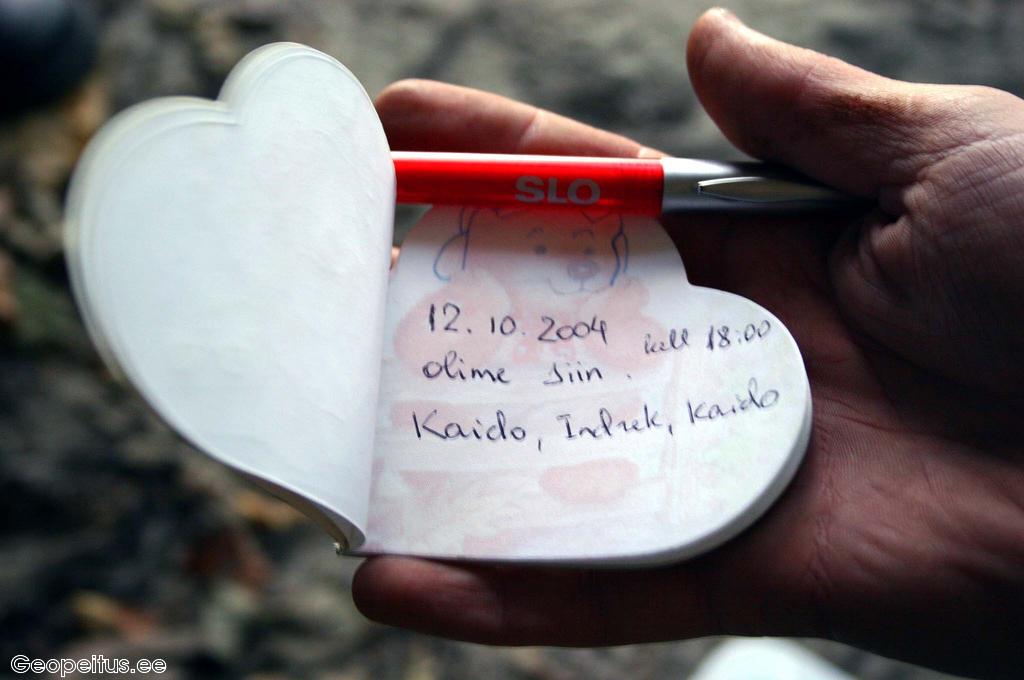 SLO
12.10.2004 kell 18:00
olime siin.
Kaido, Indrek, Kaido
Geopeitus.ee